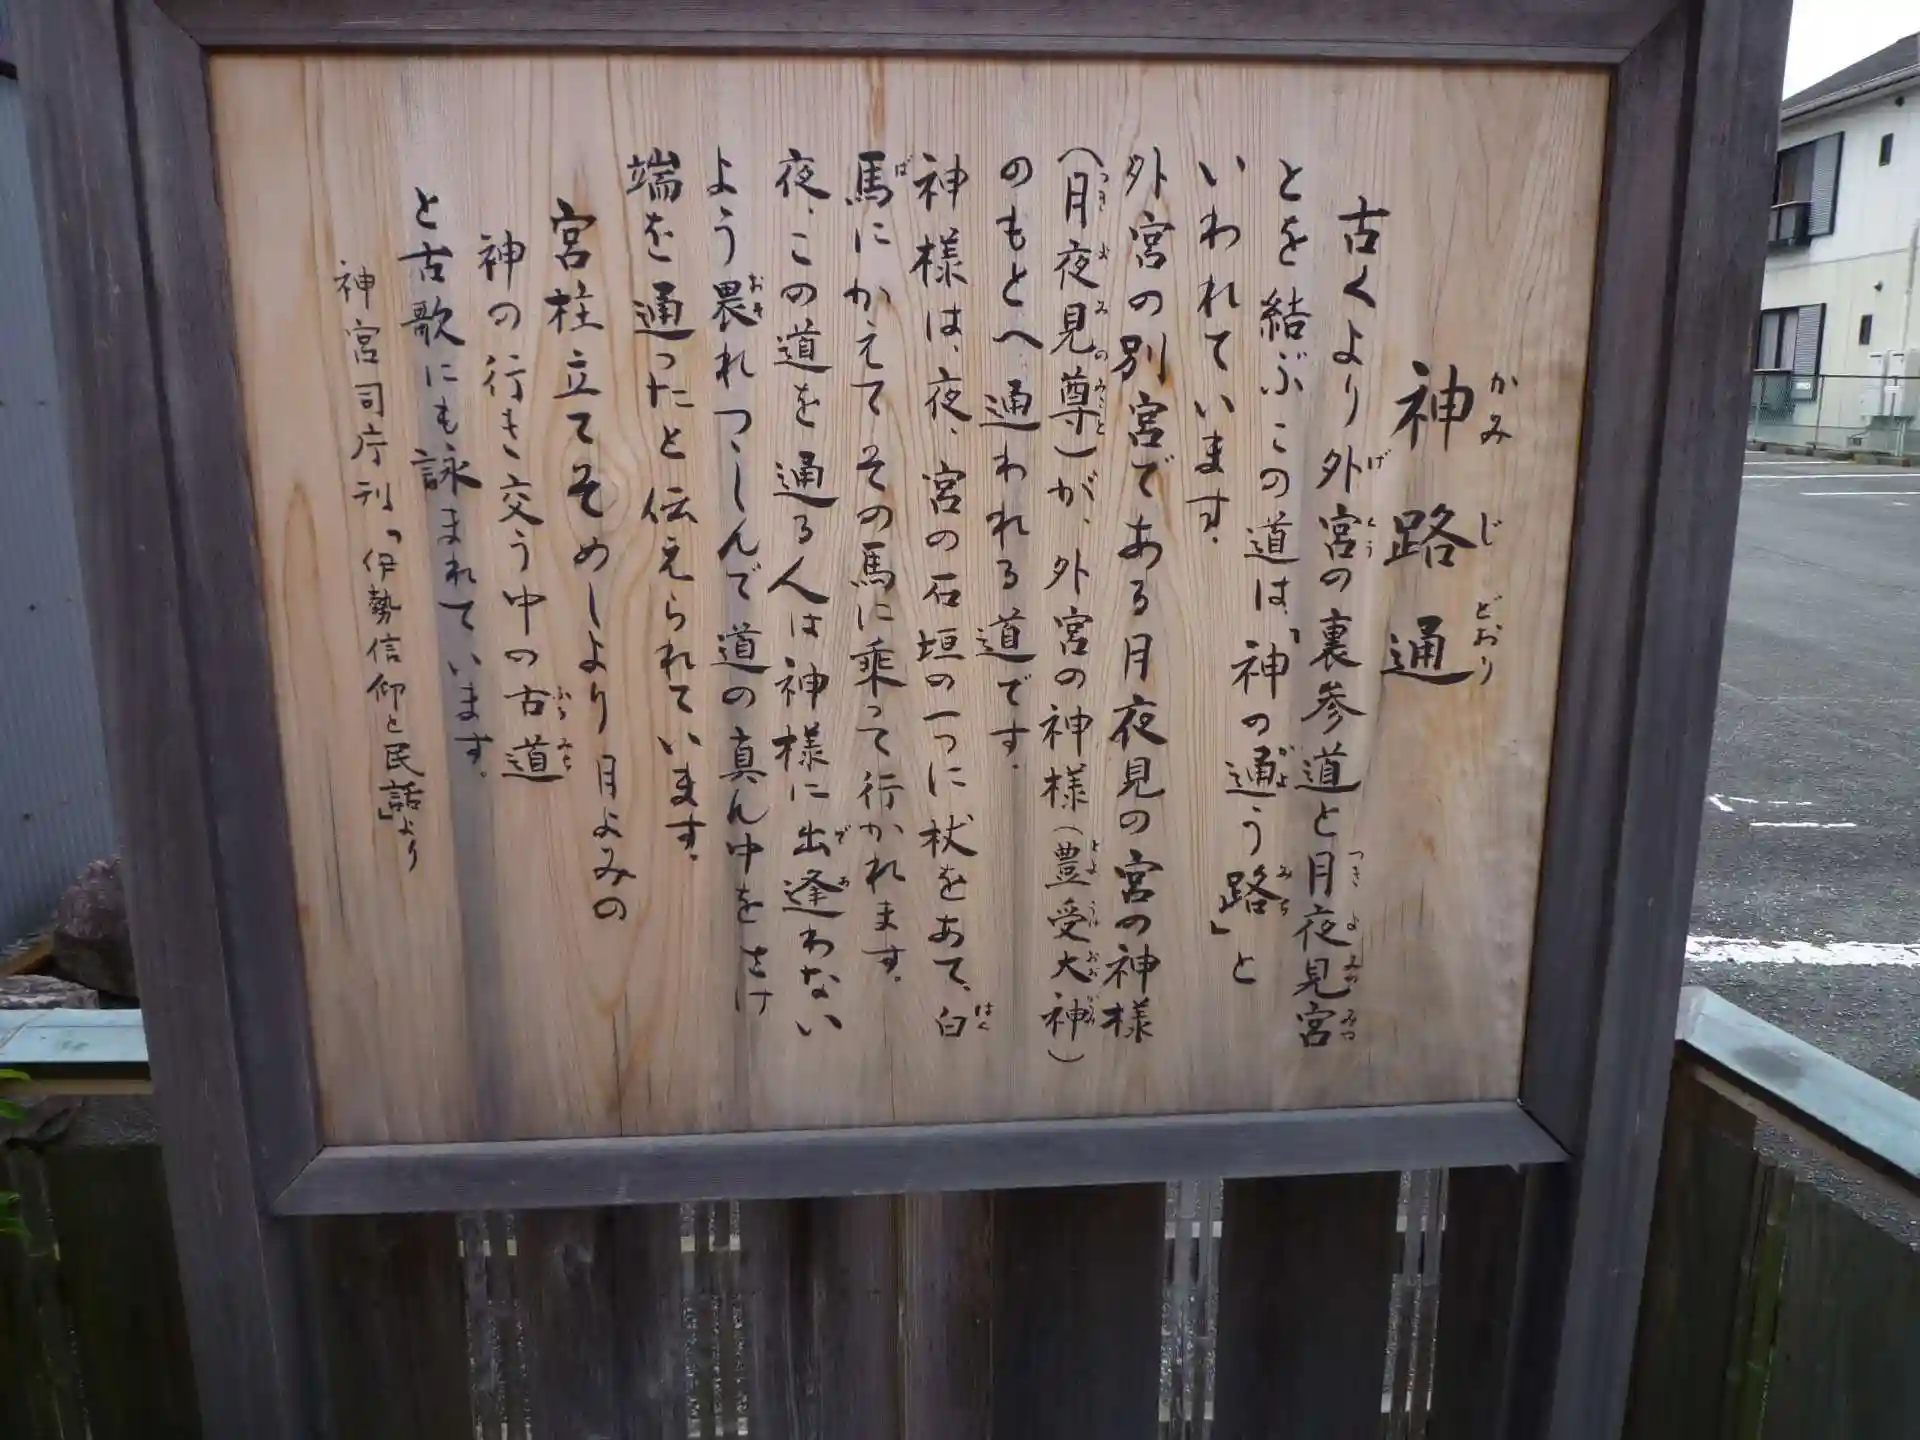 神路通
古くより外宮の裏参道と月夜見宮
とを結ぶこの道は、「神の通う路」と
いわれています。
外宮の別宮である月夜見の宮の神様
(月夜見尊)が、外宮の神様(豊受大神)
のもとへ通われる道です。
神様は、夜、宮の石垣の一つに杖をあて、白
馬にかえてその馬に乗って行かれます。
夜、この道を通る人は神様に出逢わない
よう畏れつゝしんで道の真ん中をさけ
端を通ったと伝えられています。
宮柱立てそめしより月よみの
神の行きゝ交う中の古道
と古歌にも詠まれています。
神宮司庁刊「伊勢信仰と民話」より